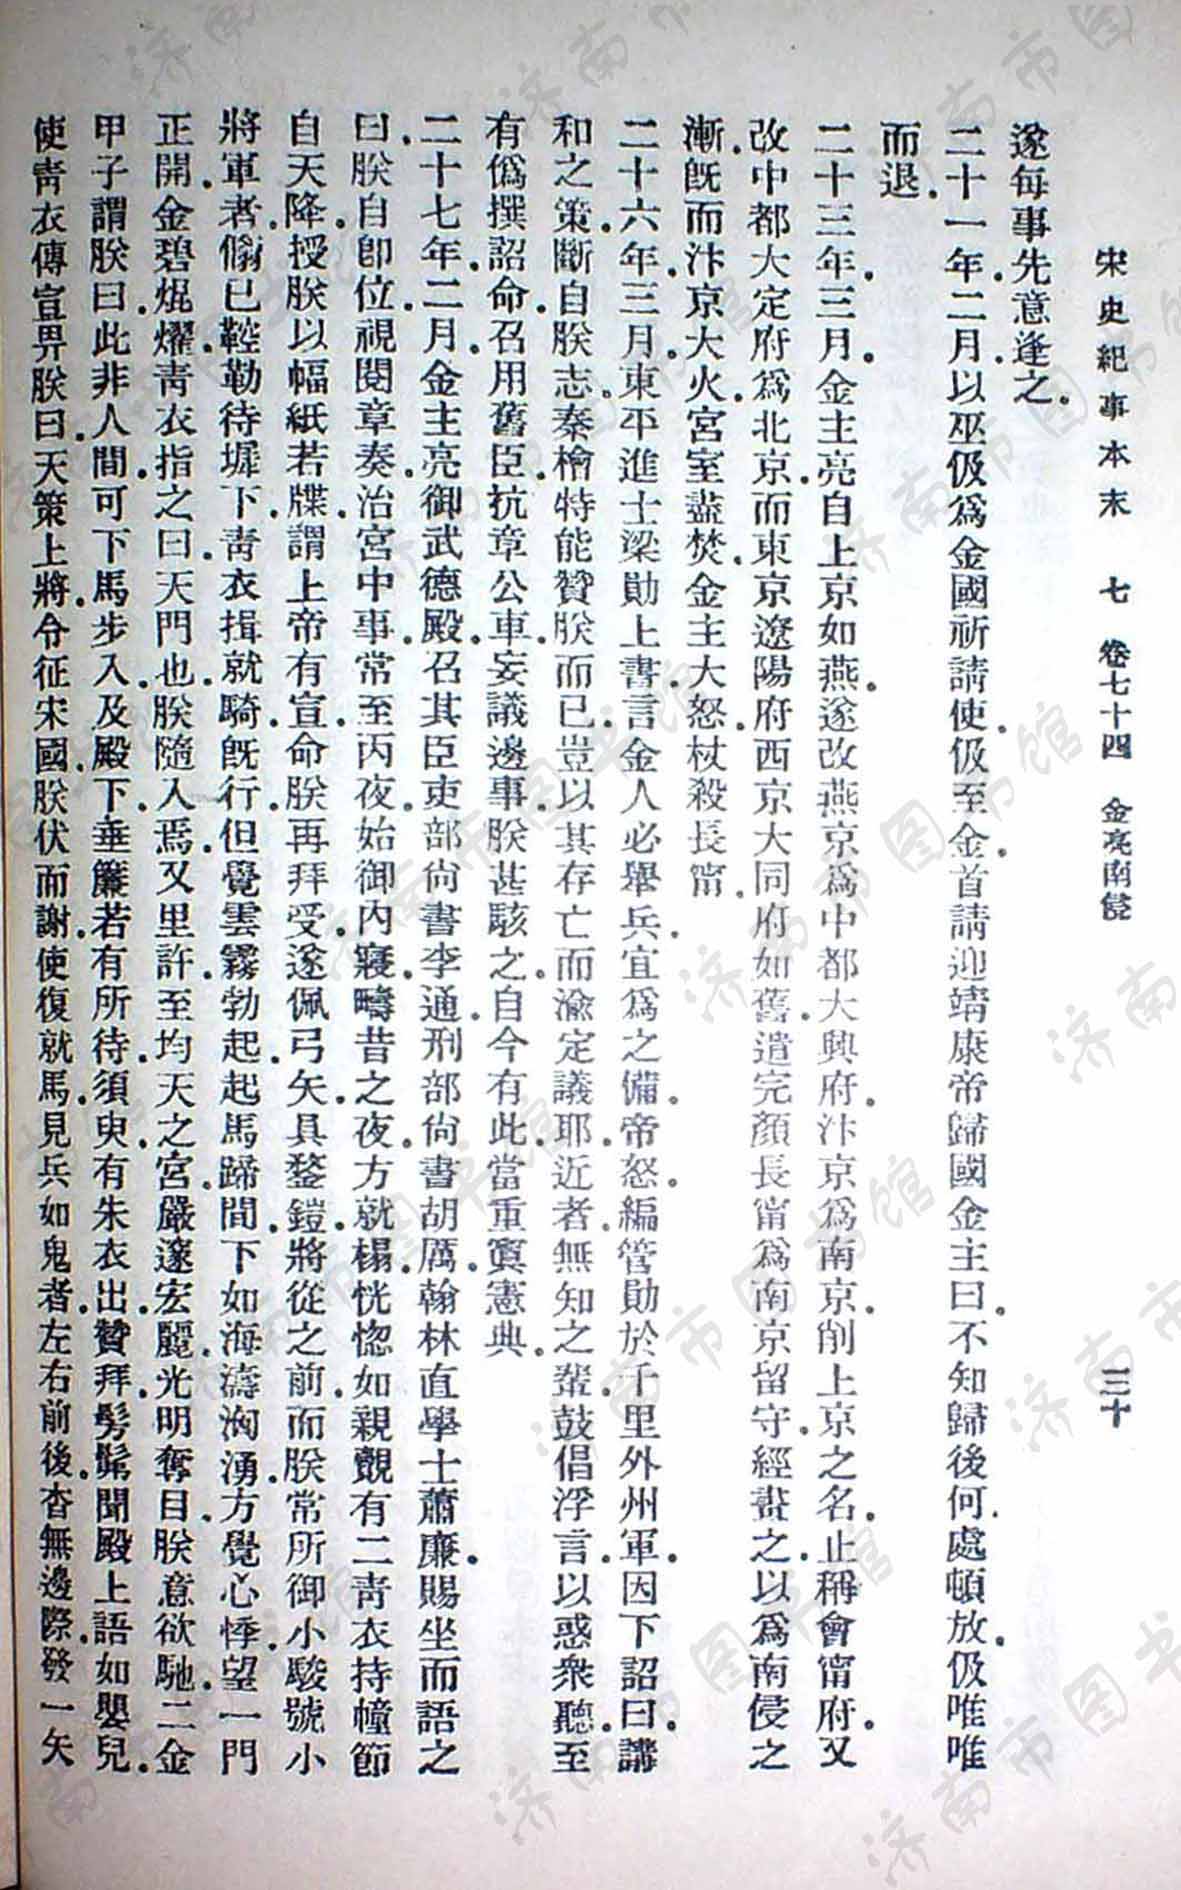 宋史紀事本末 七 卷七十四 金亮南侵 三十
遂每事先意逢之。
二十一年。二月。以巫伋爲金國祈請使。伋至金。首請迎靖康帝歸國金主曰。不知歸後何處頓放。伋唯唯
而退。
二十三年。三月。金主亮自上京如燕。遂改燕京爲中都大興府。汴京爲南京。削上京之名。止稱會甯府。又
改中都大定府爲北京。而東京遼陽府西京大同府如舊。遣完顏長甯爲南京留守。經畫之。以爲南侵之
漸。旣而汴京大火。宮室盡焚。金主大怒。杖殺長甯。
二十六年。三月。東平進士梁勛上書。言金人必舉兵。宜爲之備。帝怒。編管勛於千里外州軍。因下詔曰。講
和之策。斷自朕志。秦檜特能贊朕而已。豈以其存亡而渝定議耶。近者無知之輩。鼓倡浮言。以惑衆聽。至
有僞撰詔命。召用舊臣。抗章公車。妄議邊事。朕甚駭之。自今有此。當重寘憲典。
二十七年。二月。金主亮御武德殿。召其臣吏部尙書李通。刑部尙書胡厲。翰林直學士蕭廉。賜坐而語之
曰。朕自卽位。視閱章奏。治宮中事。常至丙夜。始御內寢。疇昔之夜。方就榻。恍惚如親覿有二靑衣持幢節
自天降。授朕以幅紙若牒。謂上帝有宣命。朕再拜受。遂佩弓矢。具鍪鎧。將從之前。而朕常所御小駿號小
將軍者。翛已鞚勒待墀下。靑衣揖就騎。旣行。但覺雲霧勃起。起馬蹄間。下如海濤洶湧。方覺心悸。望一門
正開。金碧焜燿。靑衣指之曰。天門也。朕隨入焉。又里許。至均天之宮。嚴邃宏麗。光明奪目。朕意欲馳。二金
甲子謂朕曰。此非人間。可下馬步入。及殿下。垂簾若有所待。須臾。有朱衣出。贊拜。髣髴聞殿上語如嬰兒。
使靑衣傳宣畀朕曰。天策上將。令征宋國。朕伏而謝。使復就馬。見兵如鬼者。左右前後。杳無邊際。發一矢